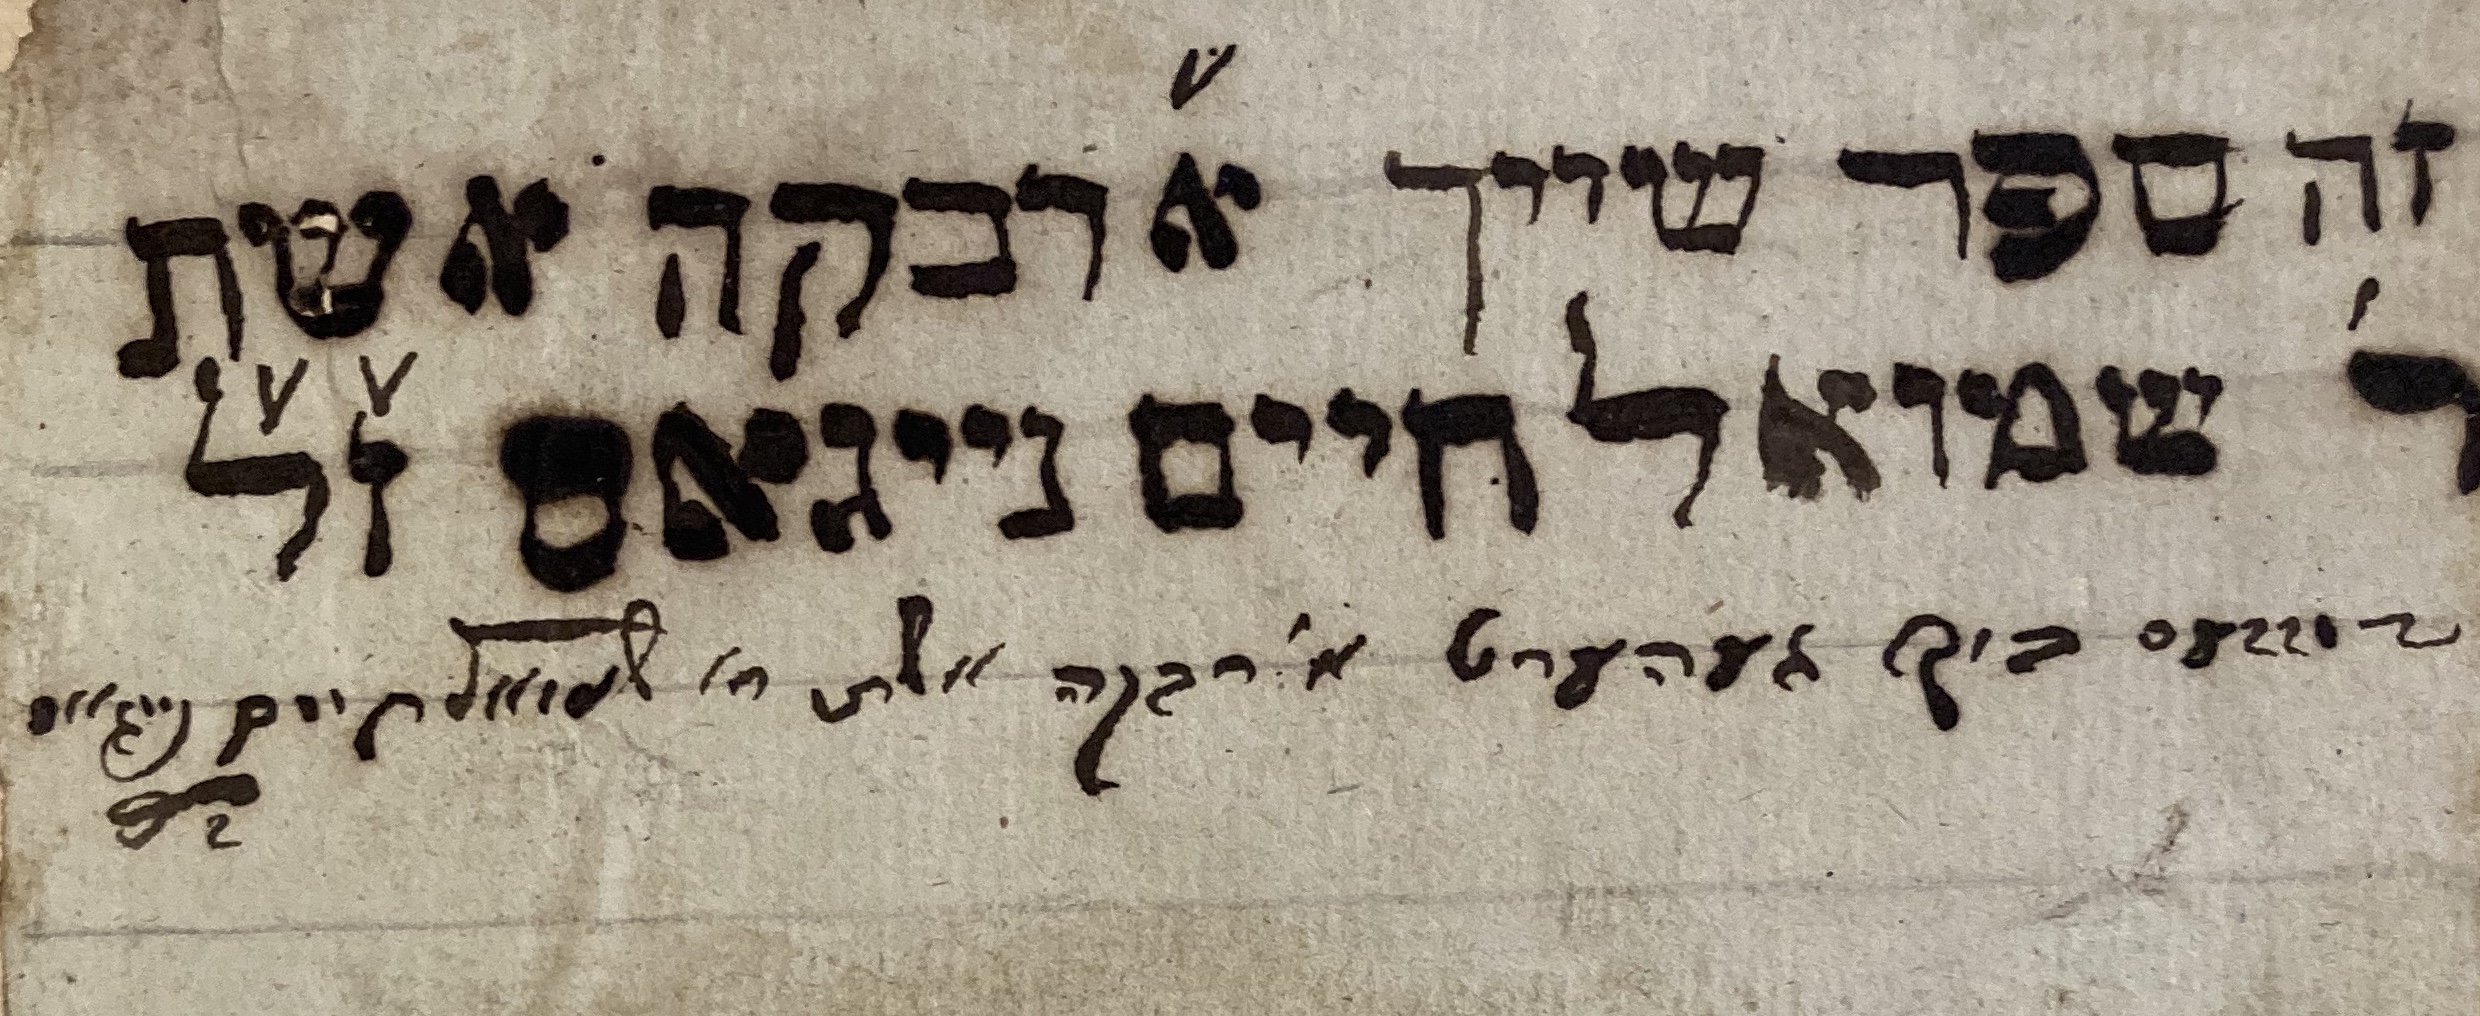 זה ספר שייך א׳ רבקה אשת
ר׳ שמואל חיים נייגאס ז״ל
דיזעס ביך געהערט א׳ רבקה אשת ר׳ שמואל חיים נייגאס